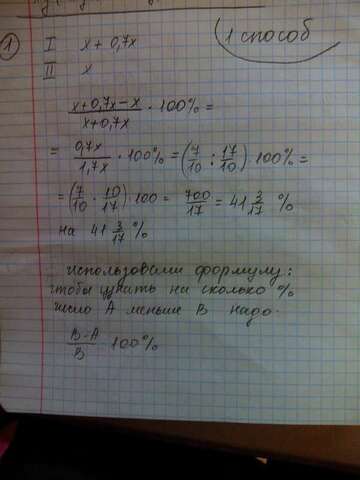 1 способ
① I x + 0,7x
II x
(x+0,7x-x)/(x+0,7x) · 100% =
= 0,7x/1,7x · 100% = (7/10 : 17/10) · 100% =
= (7/10 · 10/17) · 100 = 700/17 = 41 3/17 %
на 41 3/17 %
использовали формулу:
чтобы узнать на сколько %
число A меньше B надо.
(B-A)/B 100%